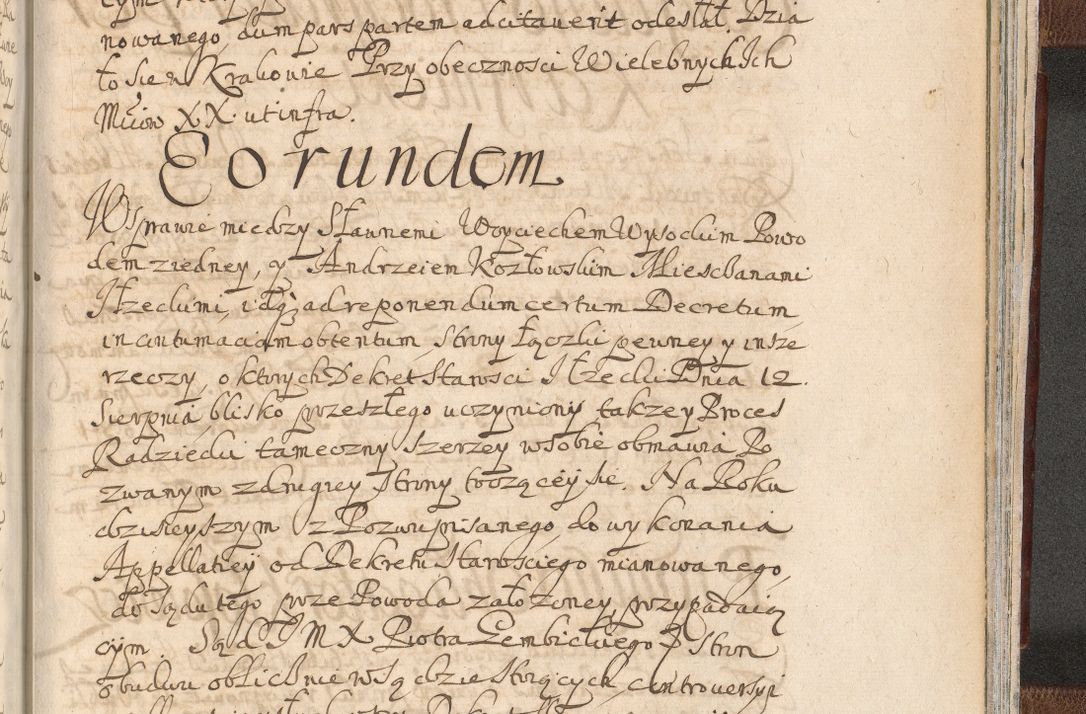 nowanego, dum pars partem adcitauerit odesłał. Dzia
ło sie w Krakowie Przy obecznosci Wielebnych Ich
Mciow XX ut infra.
Eorundem
W sprawie miedzy Sławnemi Woyciechem Wysockim Powo
dem z iedney, y Andrzeiem Kozłowskim Miesczanami
Iłzeckimi, idą ad reponendum certum Decretum,
in contumaciam obtentum, strony Łączki pewney y insze
rzeczy, o ktorych Dekret Starosci Iłzecki Dnia 12.
Sierpnia blisko przeszłego uczyniony takze y Proces
Radziecki tameczny szerzey w sobie obmawia Po
zwanym z drugiey strony toczącey sie. Na Roku
dzisieyszym z Pozwu pisanego, do wykonania
Appellatiey od Dekretu Starosciego mianowanego,
do Sądu tego prze Powoda założoney, przypadaią
cym. Sąd J M X Piotra Gembickiego P Stron
obudwu oblicznie w Sądzie stoiących, controuersyi